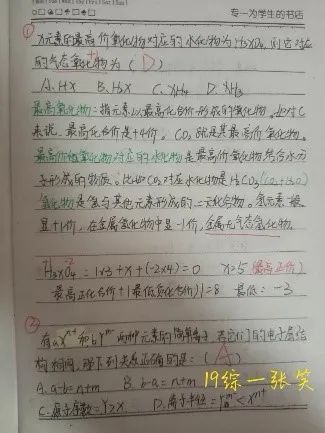 专一为学生的书店
① X元素的最高价氧化物对应的水化物为H₃XO₄,则它对应
的气态氢化物为( D )
A. HX B. H₂X C. XH₄ D. XH₃
最高氧化物:指元素以最高化合价形成的氧化物。如对C
来说,最高化合价是+4价。CO₂就是其最高价氧化物。
最高价氧化物对应的水化物是最高价氧化物结合水分
子形成的物质。比如CO₂对应水化物是H₂CO₃(CO₂+H₂O)
氢化物是氢与其他元素形成的二元化合物。氢元素一般
显+1价,在金属氢化物中显-1价,金属无气态氢化物。
+1 -2
H₃XO₄ = 1×3+X+(-2×4)=0 X=5(最高正价)
最高正化合价+|最低负化合价|=8 最低:-3
② 有aXⁿ⁺和bYᵐ⁻两种元素的简单离子,若它们的电子层结
构相同,则下列关系正确的是:( A )
A. a-b=n+m B. b-a=n+m
C. 原子序数=Y>X D. 离子半径=Yᵐ⁻<Xⁿ⁺
19综一张笑